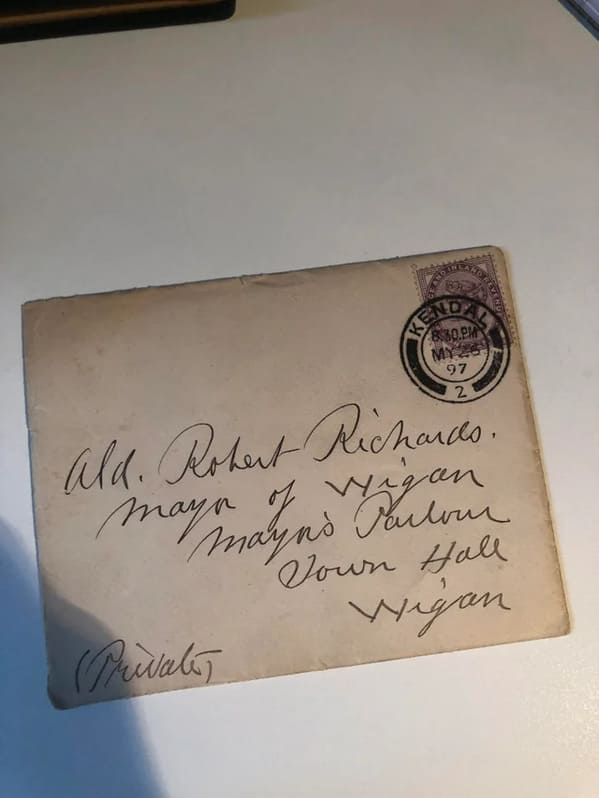 AND INLAND REVENUE
KENDAL
8.30.PM
MY 28
97
2
Ald. Robert Richards.
Mayor of Wigan
Mayor's Parlour
Town Hall
Wigan
(Private)